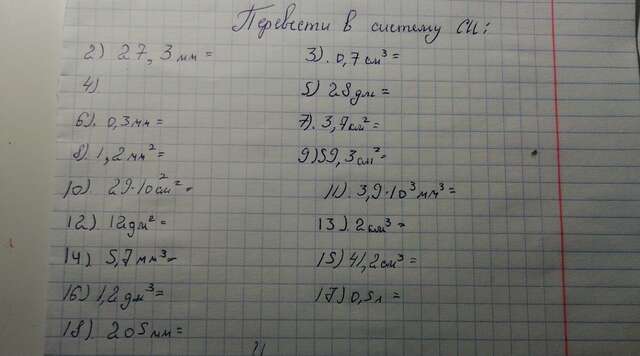 Перевести в систему СИ:
2) 27,3 мм =
3). 0,7 см³ =
4)
5) 28 дм =
6). 0,3 мм =
7). 3,7 км² =
8). 1,2 мм² =
9) 59,3 см² =
10). 29·10² см² =
11). 3,9·10³ мм³ =
12) 12 дм² =
13) 2 км³ =
14) 5,7 мм³ =
15) 41,2 см³ =
16) 1,2 дм³ =
17) 0,5 л =
18). 205 мм =